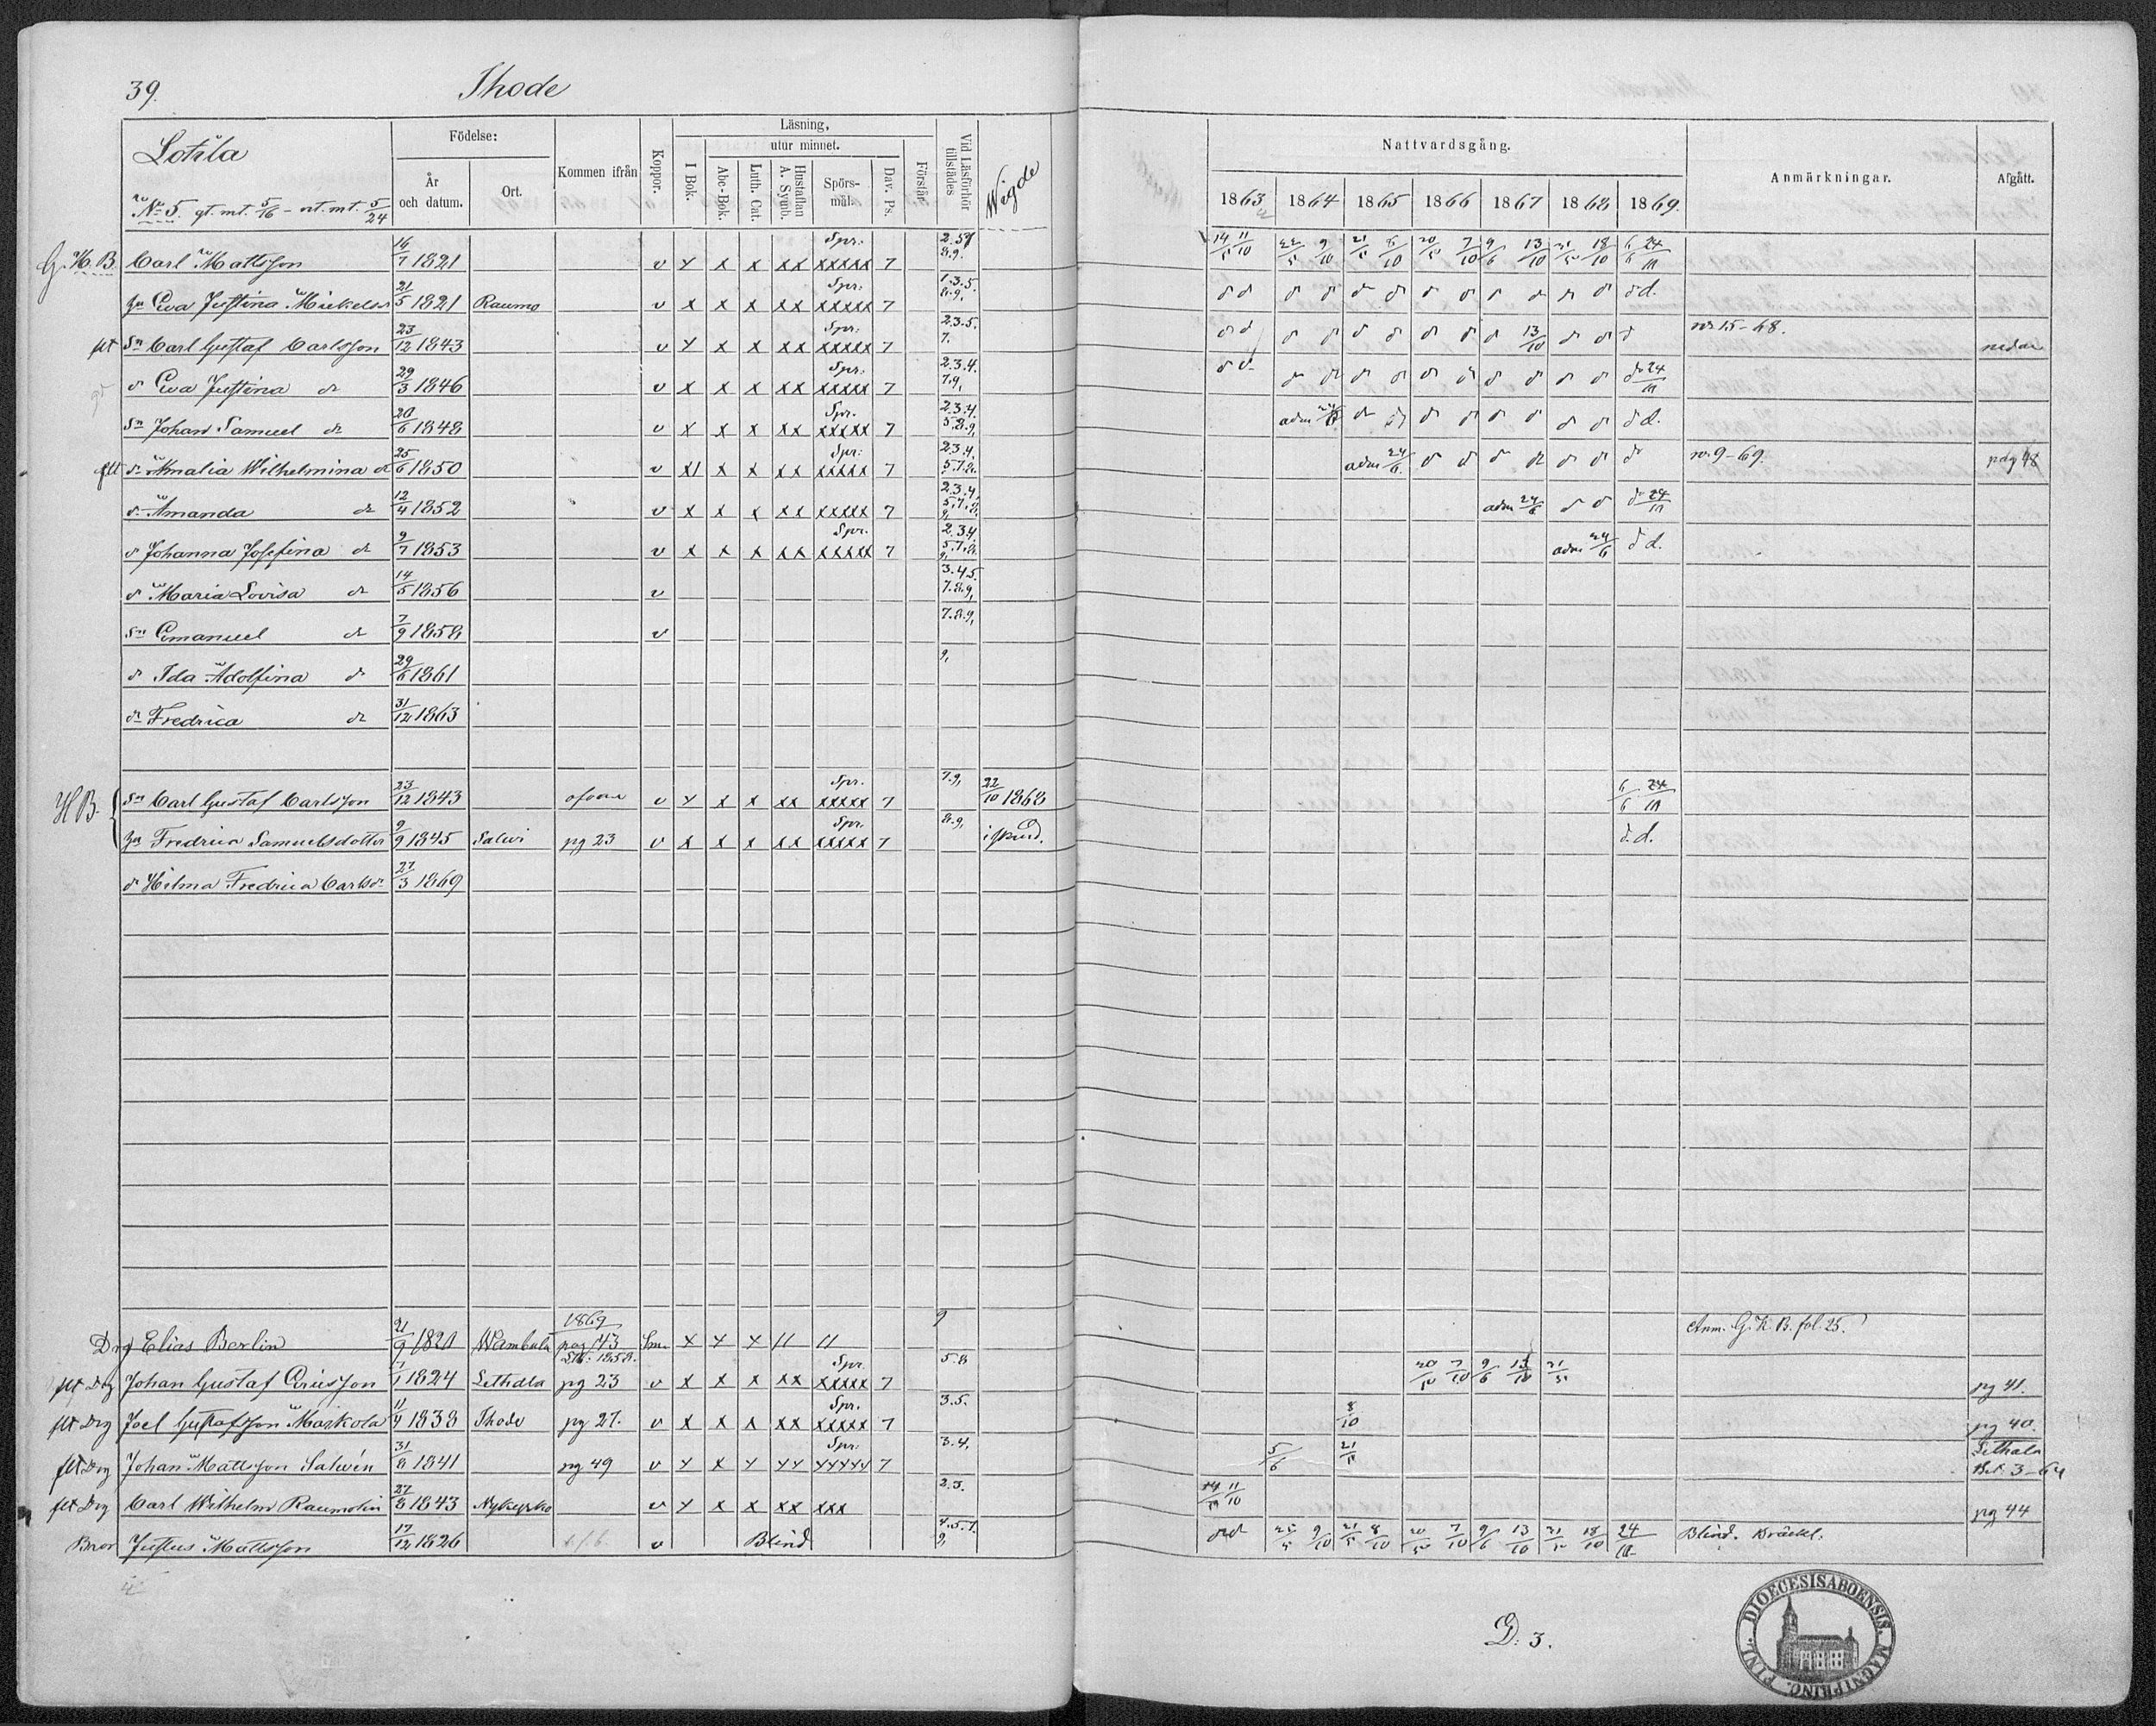 39. Ihode
Lotsla
Födelse:
År och datum.
Ort.
Kommen ifrån
Koppor.
Läsning,
utur minnet.
I Bok.
Abc-Bok.
Luth. Cat.
Hustaflan A. Symb.
Spörs-mål.
Dav. Ps.
Förstår.
Vid Läsförhör tillstädes
Wigde
Nattvardsgång.
1863 1864 1865 1866 1867 1868 1869.
Anmärkningar.
Afgått.
No 5. gt. mt. 5/16 - nt. mt. 5/24
Carl Mattsson 16/7 1821 v Spr. xxxxx 7 14/5 11/10 22/5 9/10 21/5 8/10 20/5 7/10 9/6 13/10 31/5 18/10 6/6 24/10
Eva Justina Mickelsd 21/5 1821 Raumo v x x x xx Spr. xxxxx 7 1.3.5. 8.9.
flt Sn Carl Gustaf Carlsson 23/12 1843 v x x x xx Spr. xxxxx 7 2.3.5. 7. 13/10 no 15-68. nedan
d Eva Justina d 29/3 1846 v x x x xx Spr. xxxxx 7 2.3.4. 7.9. 24/10
Sn Johan Samuel d 20/6 1848 v x x x xx Spr. xxxxx 7 2.3.4. 5.8.9. adm 24/6
flt d Amalia Wilhelmina d 25/6 1850 v x x x xx Spr. xxxxx 7 2.3.4. 5.7.8. adm 24/6 no 9-69. pdg 48
d Amanda d 12/4 1852 v x x x xx xxxxx 7 2.3.4. 5.7.8. 9. adm 24/6 24/10
d Johanna Josefina d 9/7 1853 v x x x xx Spr. xxxxx 7 2.3.4. 5.7.8. 9. adm 24/6 d d.
d Maria Lovisa d 14/5 1856 v 3.4.5. 7.8.9.
Sn Emanuel d 7/9 1858 v 7.8.9.
d Ida Adolfina d 29/6 1861 9.
d Fredrica d 31/12 1863
HB. Sn Carl Gustaf Carlsson 23/12 1843 ofvan v x x x xx Spr. xxxxx 7 7.9. 22/10 1868 6/6 24/10
Fredrica Samuelsdotter 9/9 1845 Salwi pg 23 v x x x xx Spr. xxxxx 7 8.9. d. d.
d Hilma Fredrica Carlsd 27/3 1869
Drg Elias Berlin 21/9 1820 Wambula 1869 pag 43 x x x 11 11 9 Anm. G. K. B. fol. 25.
flt Drg Johan Gustaf Ericsson 7/1 1824 Letthala pg 23 v x x x xx Spr. xxxxx 7 5.8 20/10 7/10 9/6 13/10 31/5 pg 41.
flt Drg Joel Gustafsson Maskola 11/4 1838 Ihode pg 27. v x x x xx Spr. xxxxx 7 3.5. 8/10 pg 40.
flt Drg Johan Mattsson Salwén 31/8 1841 pg 49 v x x x xx Spr. xxxxx 7 3.4. 5/6 21/5 Letthala Bet. 3-64
flt Drg Carl Wilhelm Raumolin 27/8 1843 Nykyrko v x x x xx xxx 2.3. 14/5 11/10 pg 44
Bror Justus Mattsson 17/12 1826 v Blind 4.5.7. 9. 22/5 9/10 21/5 8/10 20/5 7/10 9/6 13/10 31/5 18/10 24/10 Blind. Bräckl.
D: 3.
DIOECESIS ABOENSIS. MAGNI PRINC. FINL.